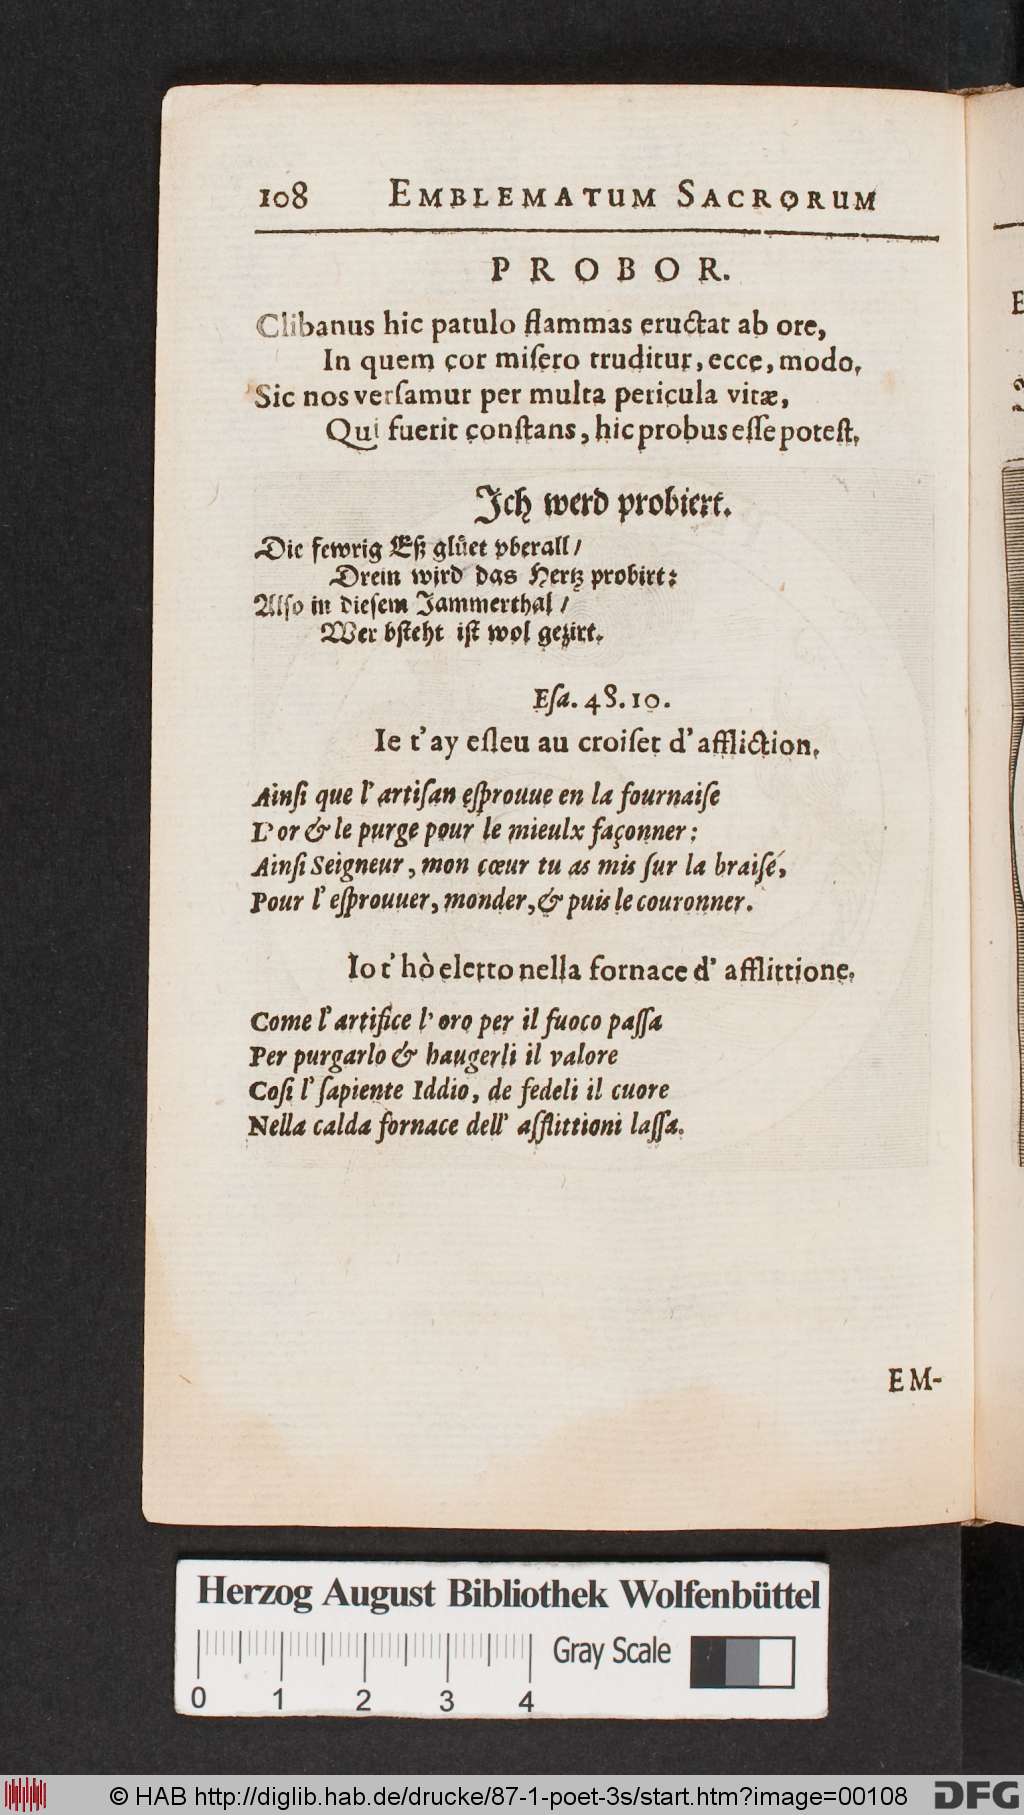 108 EMBLEMATUM SACRORUM
PROBOR.
Clibanus hic patulo flammas eructat ab ore,
In quem cor miſero truditur, ecce, modo,
Sic nos verſamur per multa pericula vitæ,
Qui fuerit conſtans, hic probus eſſe poteſt.
Ich werd probiert.
Die fewrig Eß glüet vberall /
Drein wird das Hertz probirt:
Alſo in dieſem Jammerthal /
Wer bſteht iſt wol gezirt.
Eſa. 48. 10.
Ie t'ay eſleu au croiſet d'affliction,
Ainſi que l'artiſan eſprouue en la fournaiſe
L'or & le purge pour le mieulx façonner:
Ainſi Seigneur, mon cœur tu as mis ſur la braiſé,
Pour l'eſprouuer, monder, & puis le couronner.
Io t'hò eletto nella fornace d'afflittione.
Come l'artifice l'oro per il fuoco paſſa
Per purgarlo & haugerli il valore
Coſi l'ſapiente Iddio, de fedeli il cuore
Nella calda fornace dell' aſflittioni laſſa.
EM-
Herzog August Bibliothek Wolfenbüttel
Gray Scale
0 1 2 3 4
© HAB http://diglib.hab.de/drucke/87-1-poet-3s/start.htm?image=00108
DFG